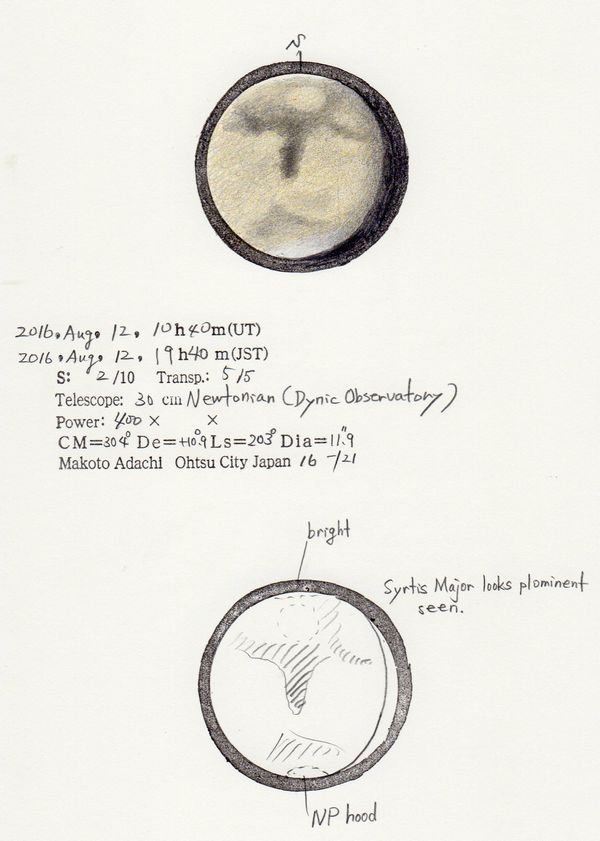 S
2016, Aug, 12, 10h40m(UT)
2016, Aug, 12, 19h40m(JST)
S: 2/10 Transp.: 5/5
Telescope: 30 cm Newtonian (Dynic Observatory)
Power: 400× ×
CM=304° De=+10.9° Ls=203° Dia=11".9
Makoto Adachi Ohtsu City Japan 16-/21
bright
Syrtis Major looks plominent
seen.
NP hood